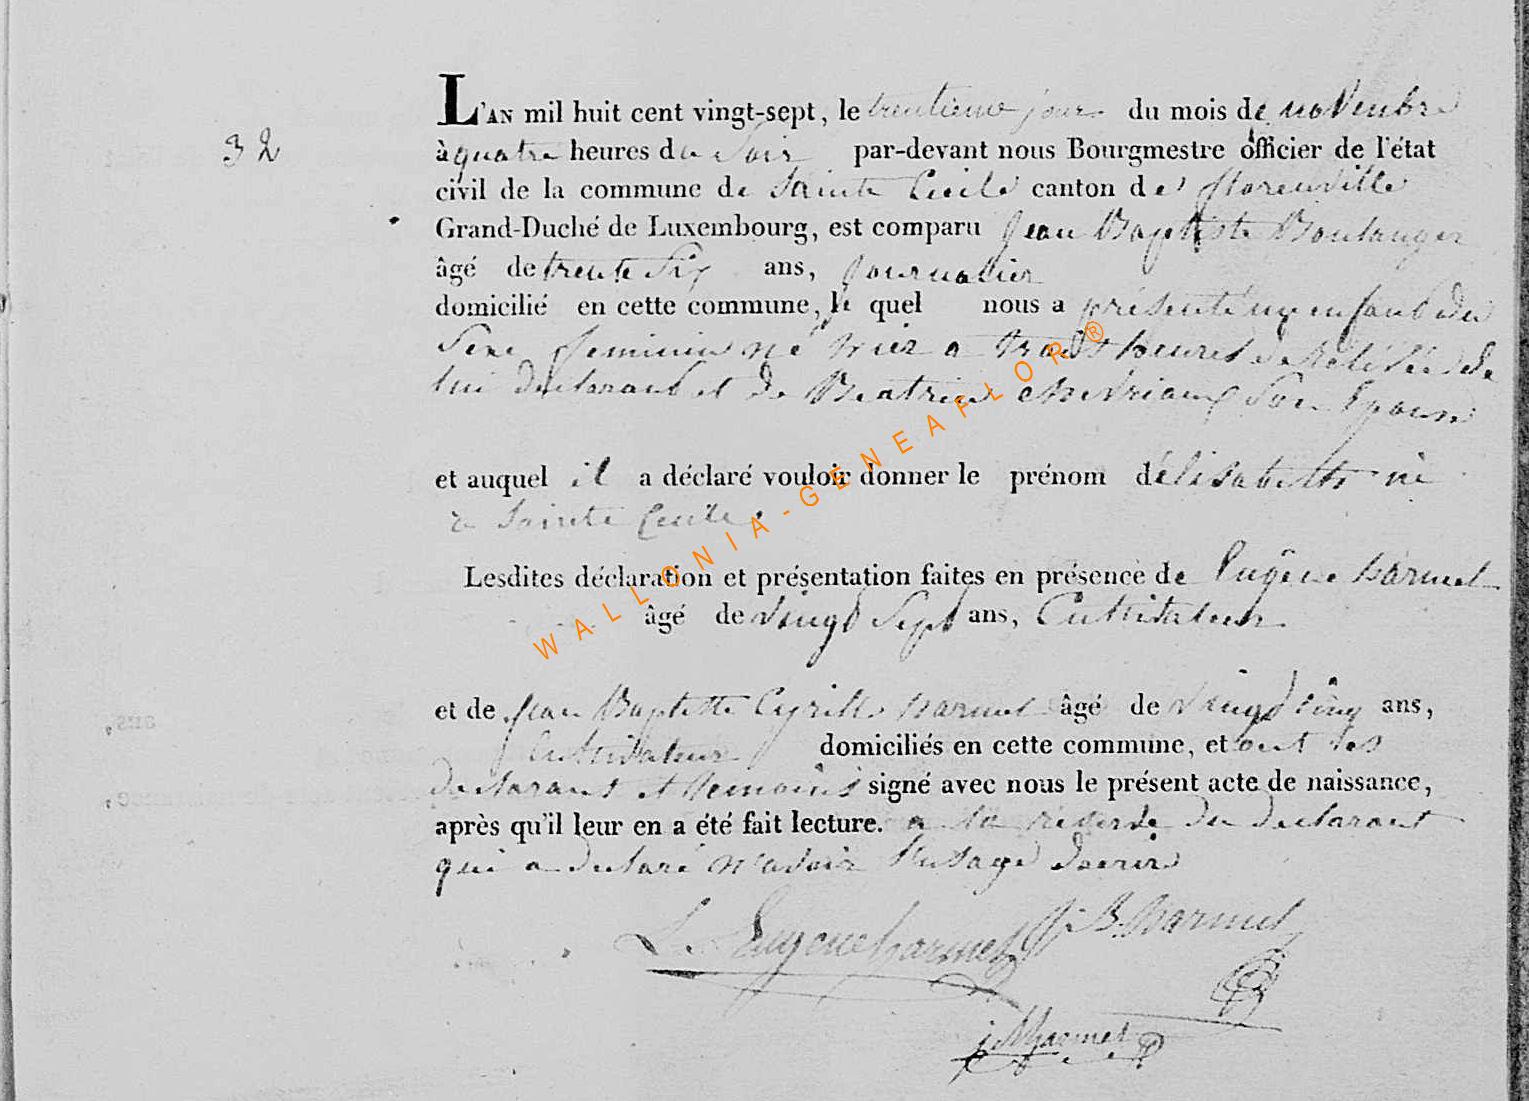 32
L'AN mil huit cent vingt-sept, le trentieme jour du mois de novembre
à quatre heures du Soir par-devant nous Bourgmestre officier de l'état
civil de la commune de Sainte Cecile canton de florenville
Grand-Duché de Luxembourg, est comparu Jean Baptiste Boulanger
âgé de trente Six ans, Journalier
domicilié en cette commune, le quel nous a présenté un enfant du
Sexe feminin né hier a heures de
lui declarant et de Beatrix Son Epouse
et auquel il a déclaré vouloir donner le prénom délisabeth né
a Sainte Cecile.
Lesdites déclaration et présentation faites en présence de Eugêne harmel
âgé de Vingt Sept ans, Cultivateur
et de Jean Baptette Cyrille harmel âgé de Vingt cinq ans,
Cultivateur domiciliés en cette commune, et ont les
declarant et temoins signé avec nous le présent acte de naissance,
après qu'il leur en a été fait lecture. a la réserve du declarant
qui a declaré n'avoir l'usage décrire
L. Eugene harmel J. B. harmel
harmel
WALLONIA-GENEAFLOR®